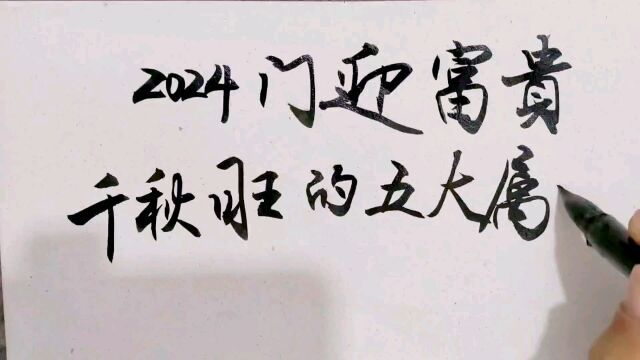 2024门迎富貴
千秋旺的五大属